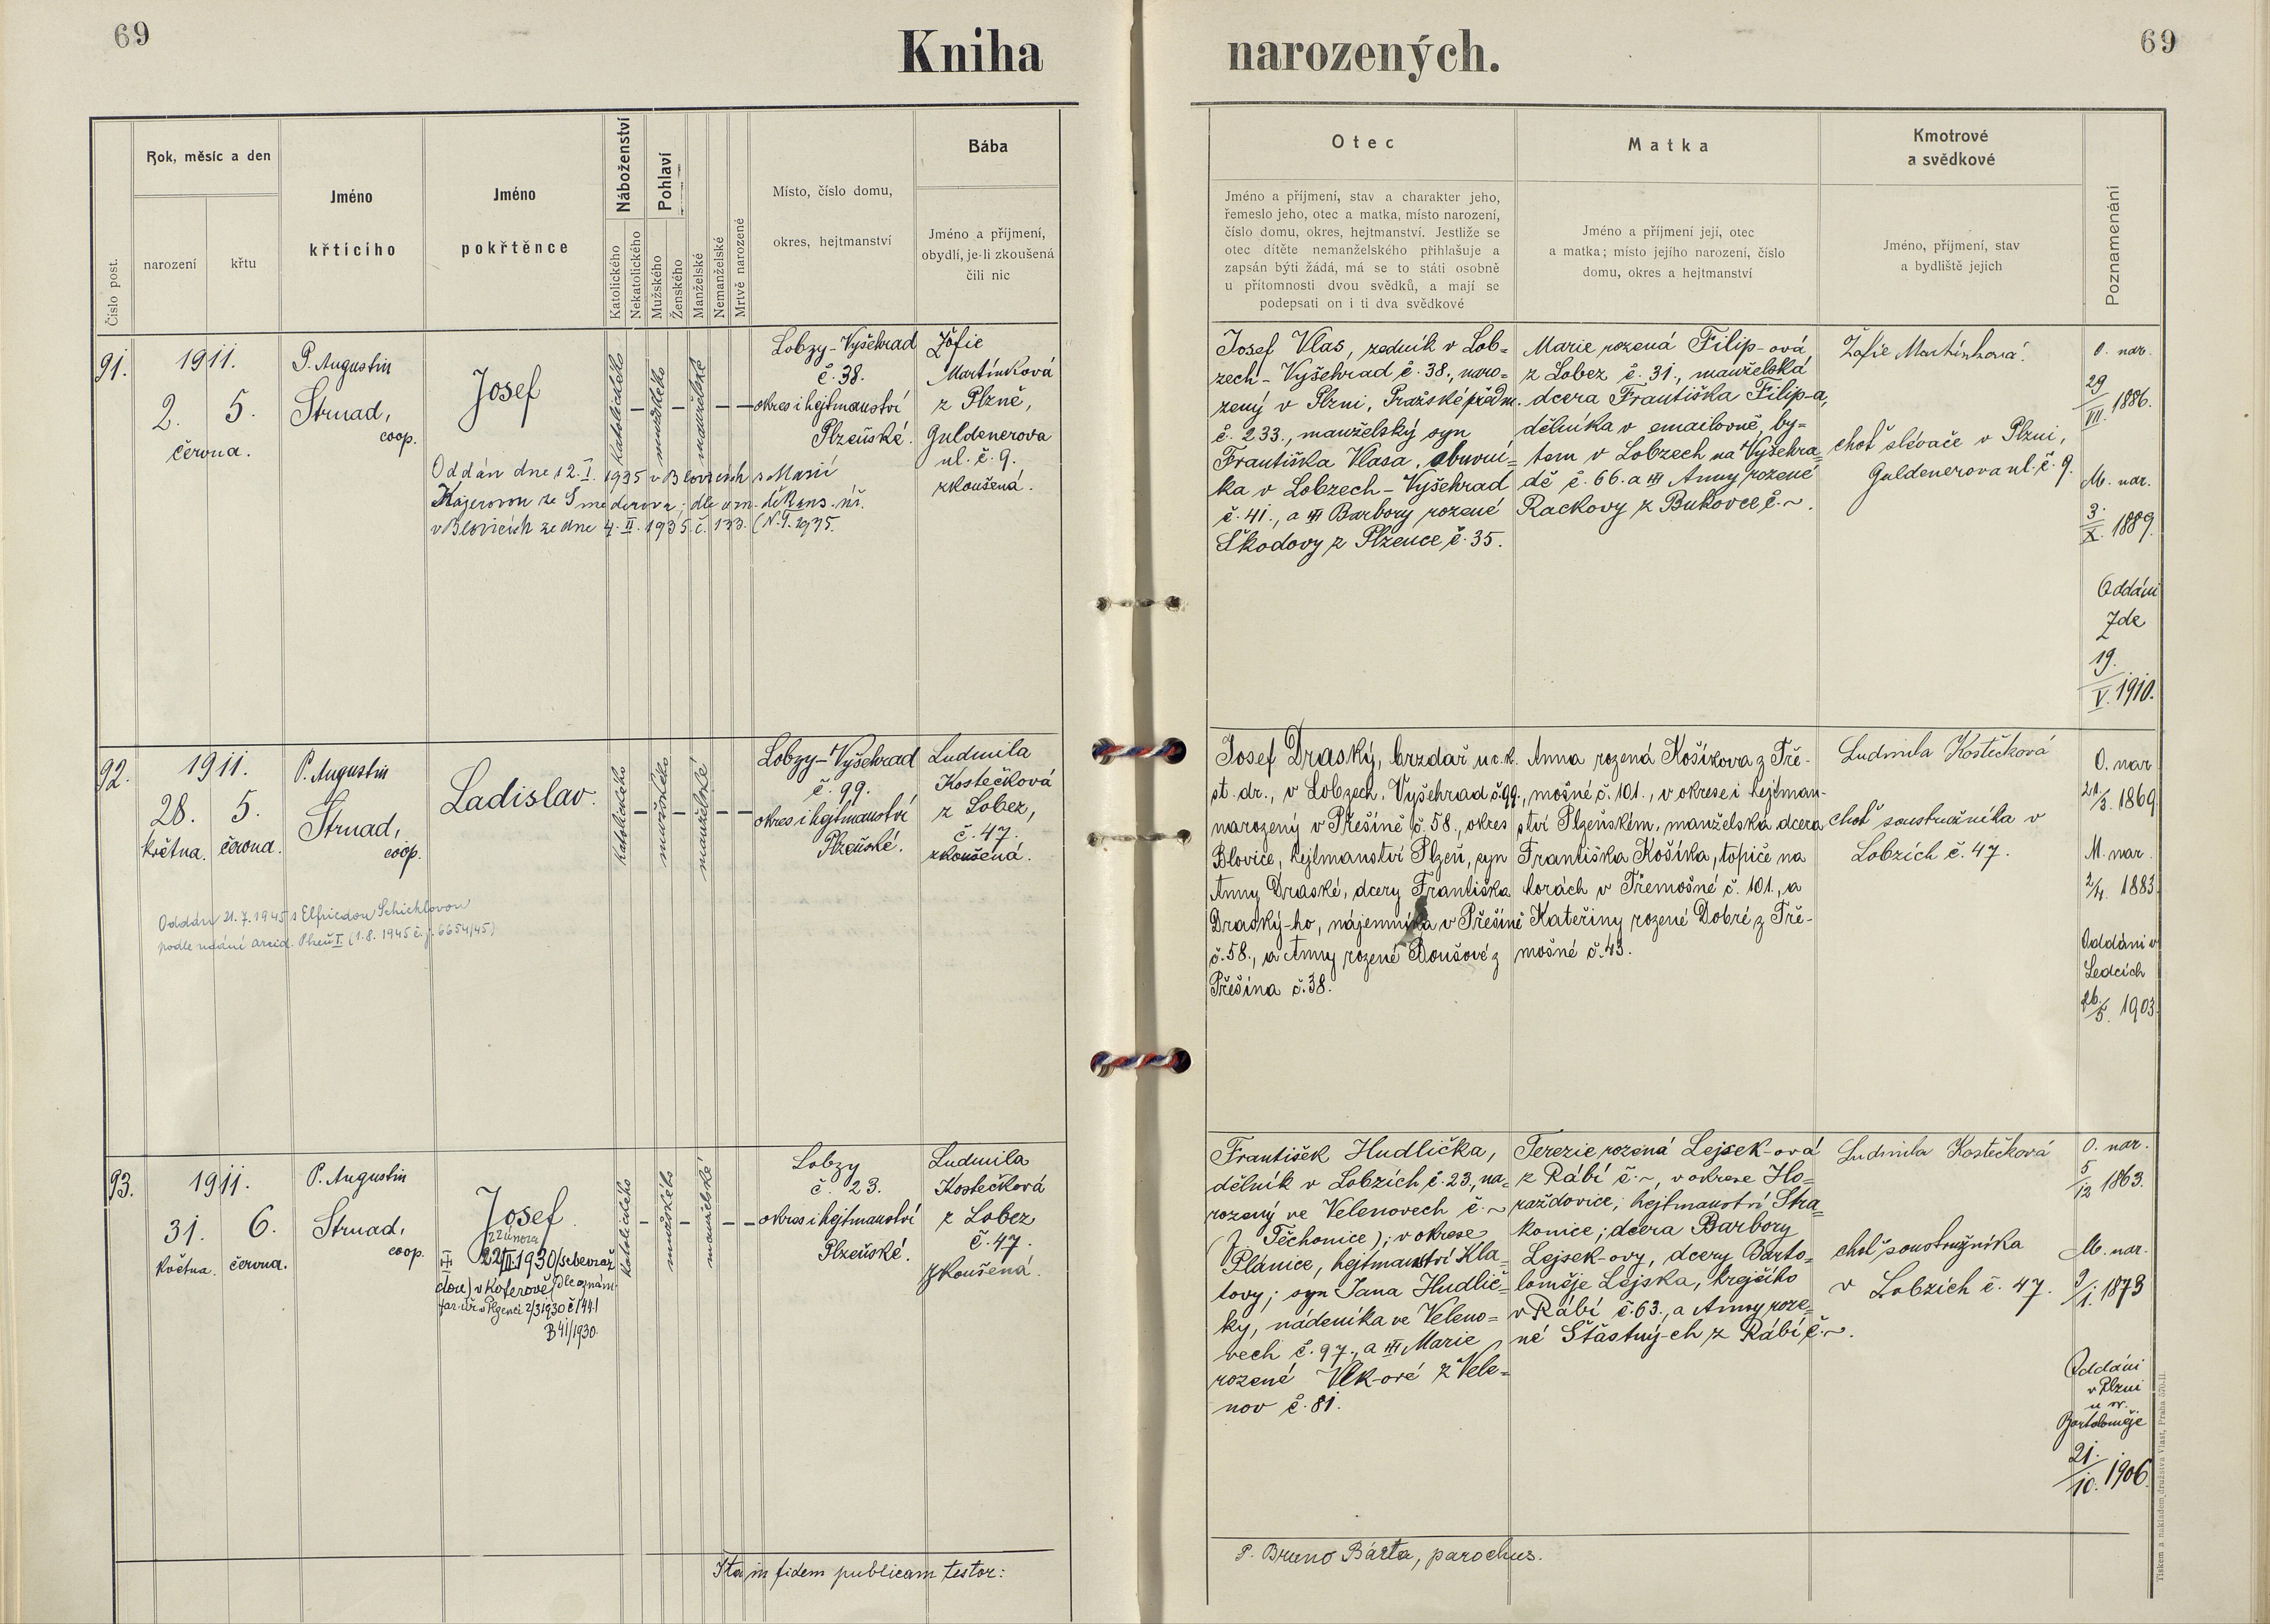 69
Kniha narozených.
69
Číslo post.
Rok, měsíc a den
narození
křtu
Jméno
křtícího
Jméno
pokřtěnce
Náboženství
Katolického
Nekatolického
Pohlaví
Mužského
Ženského
Manželské
Nemanželské
Mrtvě narozené
Místo, číslo domu,
okres, hejtmanství
Bába
Jméno a příjmení,
obydlí, je-li zkoušená
čili nic
Otec
Jméno a příjmení, stav a charakter jeho,
řemeslo jeho, otec a matka, místo narození,
číslo domu, okres, hejtmanství. Jestliže se
otec dítěte nemanželského přihlašuje a
zapsán býti žádá, má se to státi osobně
u přítomnosti dvou svědků, a mají se
podepsati on i ti dva svědkové
Matka
Jméno a příjmení její, otec
a matka; místo jejího narození, číslo
domu, okres a hejtmanství
Kmotrové
a svědkové
Jméno, příjmení, stav
a bydliště jejich
Poznamenání
91.
1911.
2. 5.
června.
P. Augustin
Strnad,
coop.
Josef
Oddán dne 12. I. 1935 v Blovicích s Marií
v Blovicích ze dne 4. II. 1935 č. 133.
katolického
–
mužského
–
manželské
– –
Lobzy-Vyšehrad
č. 38.
okres i hejtmanství
Plzeňské.
Žofie
Martínková
z Plzně,
Guldenerova
ul. č. 9.
zkoušená.
Josef Vlas, zedník v Lob=
zech-Vyšehrad č. 38., naro=
zený v Plzni, Pražské předm.
č. 233., manželský syn
Františka Vlasa, obuvní=
ka v Lobzech-Vyšehrad
č. 41., a Barbory rozené
Škodovy z Plzence č. 35.
Marie rozená Filip-ová
z Lobez č. 31., manželská
dcera Františka Filip-a,
dělníka v emailovně, by=
tem v Lobzech na Vyšehra=
dě č. 66. a Anny rozené
Rackovy z Bukovce č. ~.
Žofie Martínková.
choť slévače v Plzni,
Guldenerova ul. č. 9.
O. nar.
29
VII. 1886.
M. nar.
3.
X. 1889.
Oddáni
Zde
19.
V. 1910.
92.
1911.
28. 5.
května. června.
P. Augustin
Strnad,
coop.
Ladislav.
Oddán 21. 7. 1945 s Elfriedou Schichlovou
(1. 8. 1945 č. j. 6654/45)
katolického
–
mužského
–
manželské
– –
Lobzy-Vyšehrad
č. 99.
okres i hejtmanství
Plzeňské.
Ludmila
Kostečková
z Lobez,
č. 47.
zkoušená.
Josef Draský, brzdař u c. k.
st. dr., v Lobzech, Vyšehrad č. 99.,
narozený v Přešíně č. 58., okres
Blovice, hejtmanství Plzeň, syn
Anny Draské, dcery Františka
Draský-ho, nájemníka v Přešíně
č. 58., a Anny rozené Doušové z
Přešína č. 38.
Anna rozená Košíkova z Tře-
mošné č. 101., v okrese i hejtman-
ství Plzeňském, manželská dcera
Františka Košíka, topiče na
horách v Třemošné č. 101., a
Kateřiny rozené Dobré z Tře-
mošné č. 43.
Ludmila Kostečková
choť soustružníka v
Lobzích č. 47.
O. nar.
21/3. 1869.
M. nar.
2/4. 1883.
Oddáni v
Ledcích
26./5. 1903.
93.
1911.
31. 6.
května. června.
P. Augustin
Strnad,
coop.
Josef.
22 února
22/II. 1930
Dle oznám.
far. úř. v Plzenci 2/3 1930 č. 1441
B 41/1930.
katolického
–
mužského
–
manželské
– –
Lobzy
č. 23.
okres i hejtmanství
Plzeňské.
Ludmila
Kostečková
z Lobez
č. 47.
zkoušená.
František Hudlička,
dělník v Lobzích č. 23, na=
rozený ve Velenovech č. ~
(f. Těchonice); v okrese
Plánice, hejtmanství Kla=
tovy; syn Jana Hudlič=
ky, nádeníka ve Veleno=
vech č. 97., a Marie
rozené Vlk-ové z Vele=
nov č. 81.
Terezie rozená Lejsek-ová
z Rábí č. ~, v okrese Ho=
ražďovice, hejtmanství Stra=
konice; dcera Barbory
Lejsek-ovy, dcery Barto=
loměje Lejska, krejčího
v Rábí č. 63., a Anny roze=
né Šťastný-ch z Rábí č. ~.
Ludmila Kostečková
choť soustružníka
v Lobzích č. 47.
O. nar.
5
12 1863.
M. nar.
9/1. 1873
Oddáni
v Plzni
u sv.
Bartoloměje
21.
10. 1906.
Ita in fidem publicam testor:
P. Bruno Bárta, parochus.
Tiskem a nákladem družstva Vlast, Praha 570-II.